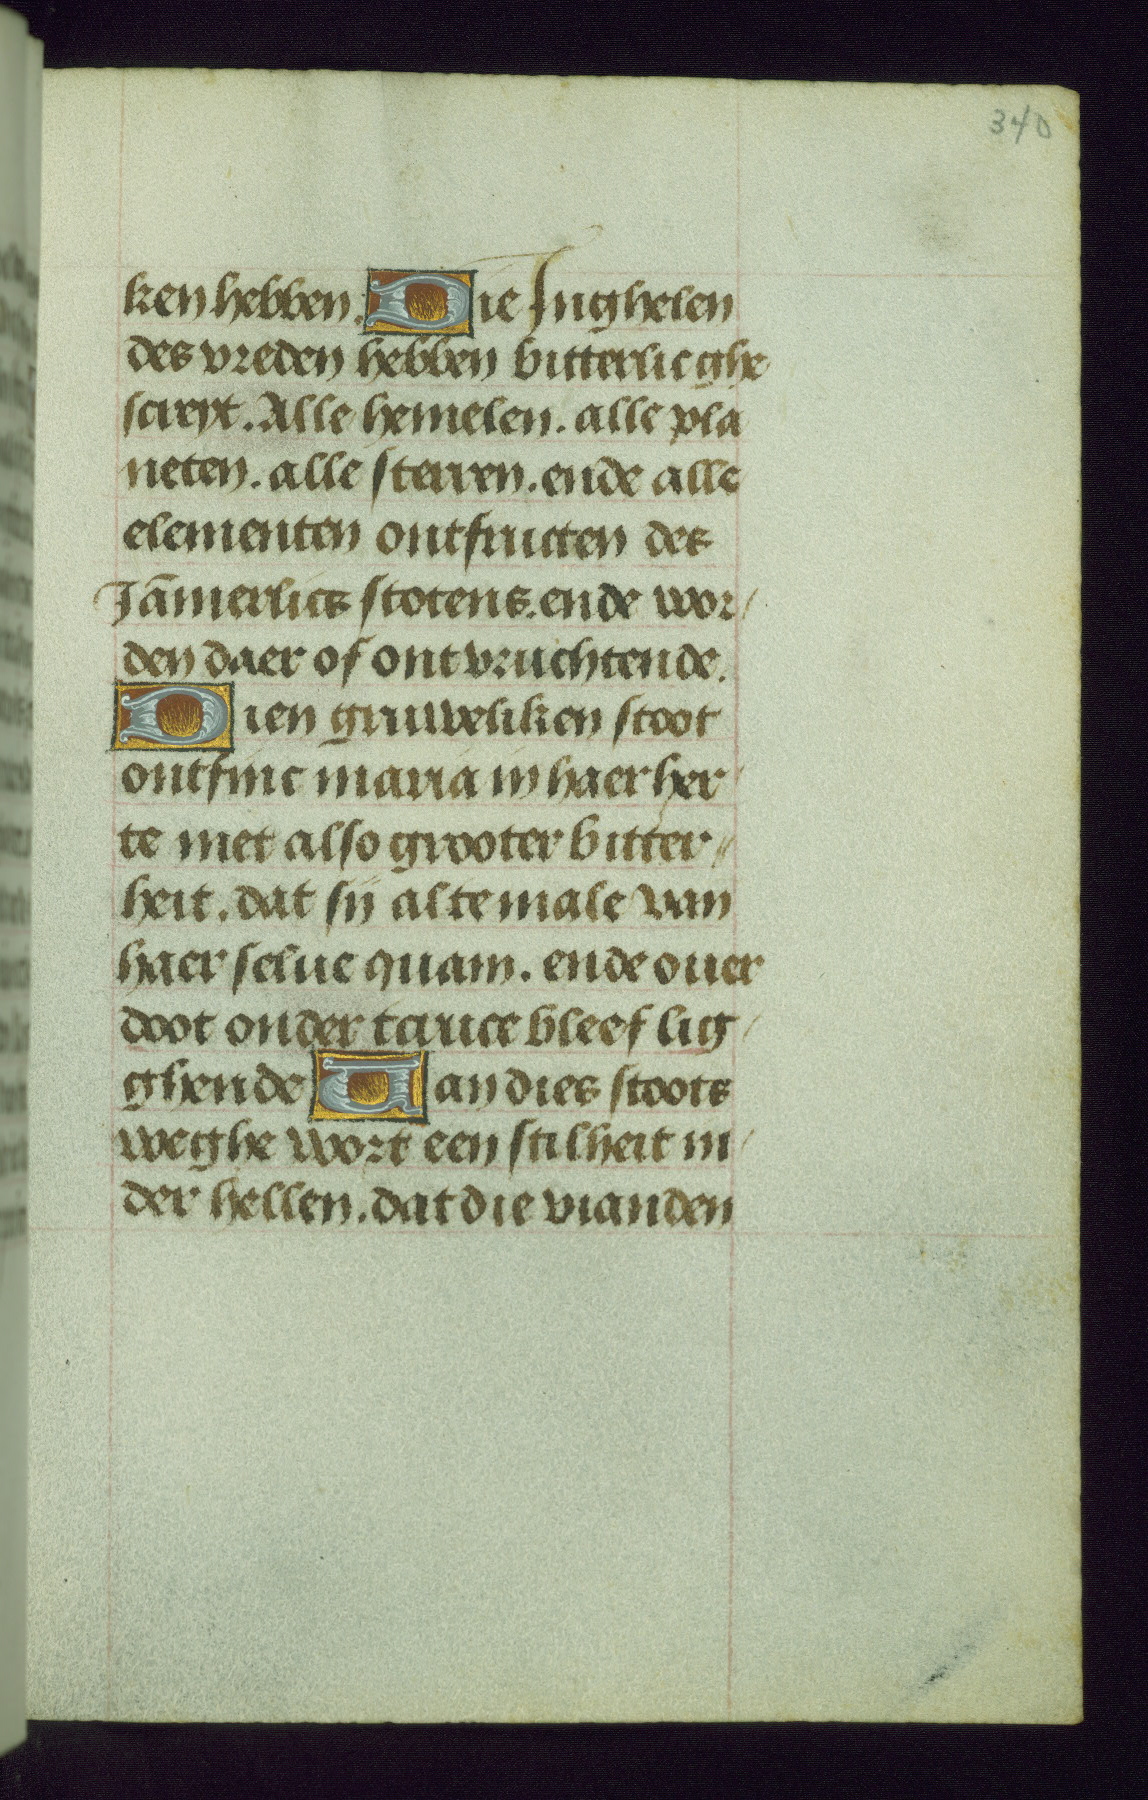 340
ken hebben. Die Inghelen
des vreden hebben bitterlic ghe
screyt. Alle hemelen. alle pla
neten. alle sterren. ende alle
elementen ontfructen des
Jāmerlics stotens. ende wor/
den daer of ontvruchtende.
Dien gruweliken stoot
ontfinc maria in haer her/
te met also grooter bitter//
heit. dat sij altemale van
haer selue quam. ende ouer
doot onder tcruce bleef lig/
ghende Van dies stoots
weghe wort een stilheit in/
der hellen. dat die vianden